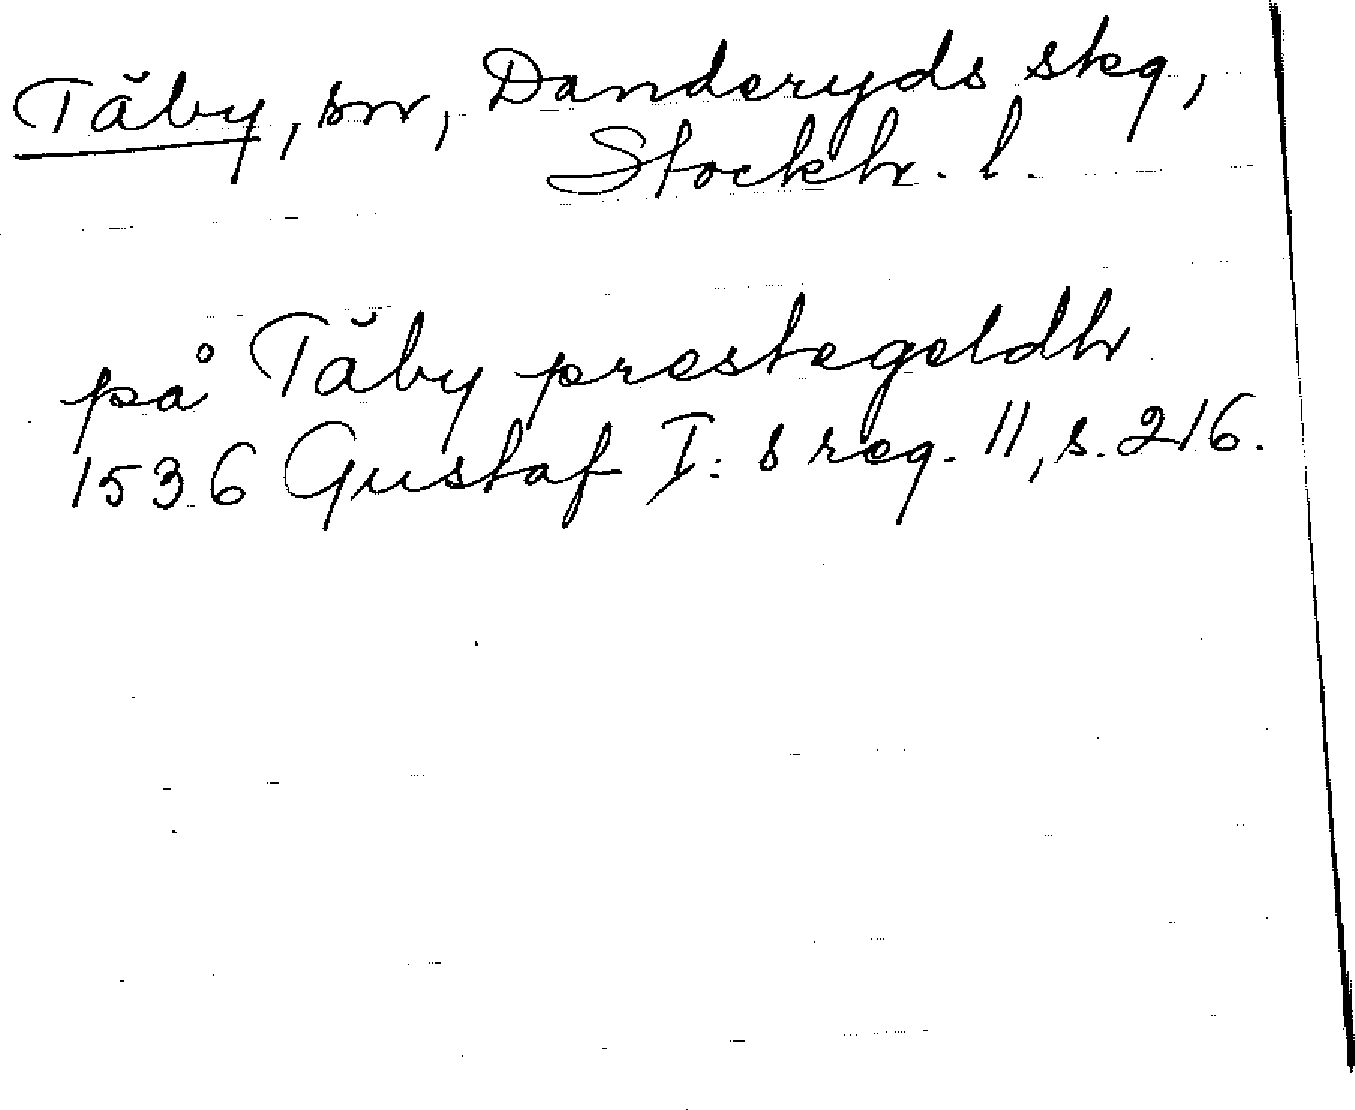 Täby, sn, Danderyds skg,
Stockh. l.
på Täby prestegeldh
1536 Gustaf I:s reg. 11, s. 216.